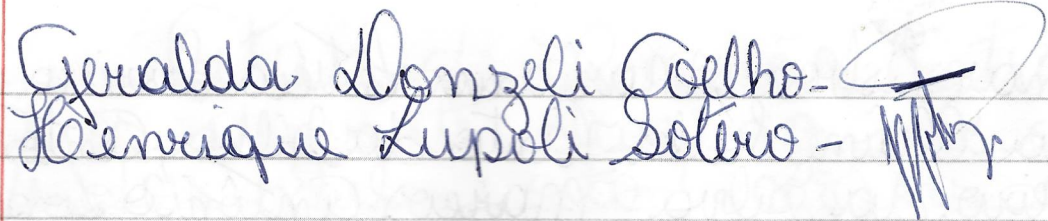 Geralda Donzeli Coelho-
Henrique Lupoli Sotero -